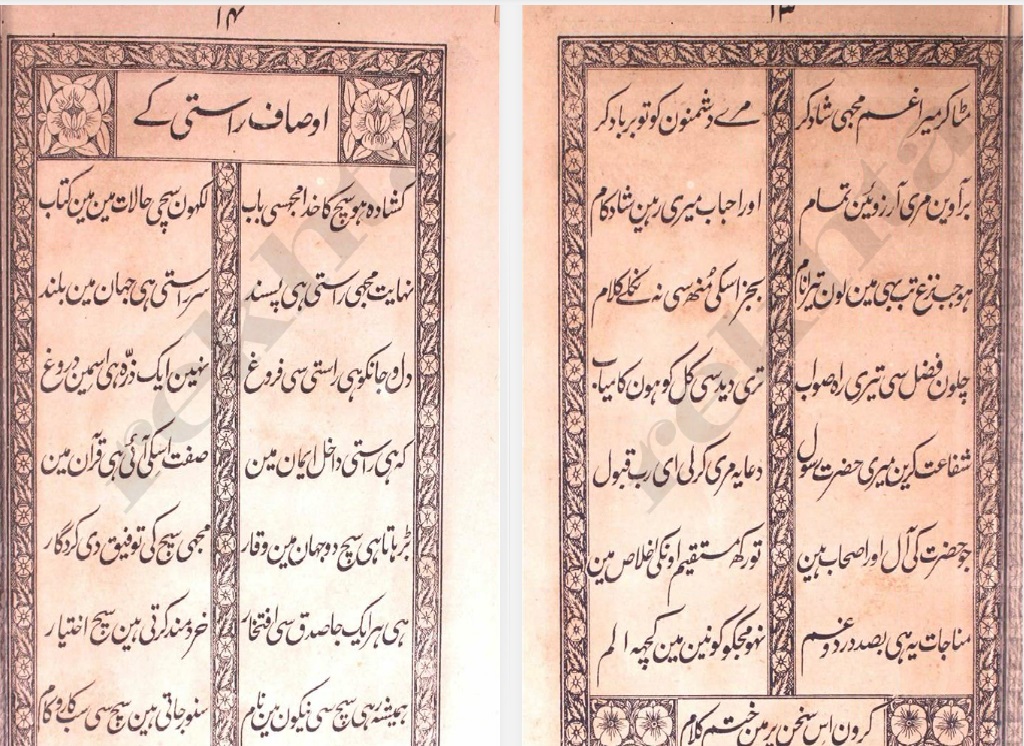 ۱۳
مٹا کر میرا غم مجہی شاد کر مرے دشمنون کو تو برباد کر
برآوین مری آرزوئین تمام اور احباب میری رہین شادکام
ہو جب نزع تب بہی مین لون تیرا نام بجز اسکی مُنہہ سی نہ نکلے کلام
چلون فضل سی تیری راہ صواب تری دید سی کل کو ہون کامیاب
شفاعت کرین میری حضرت رسول دعا یہ مری کرلی ای رب قبول
جو حضرت کی آل اور اصحاب ہین تو رکھ مستقیم اونکی اخلاص مین
مناجات یہ ہی بصد درد و غم نہو مجکو کونین مین کچہہ الم
کرون اس سخن پر مین ختم کلام
۱۴
اوصاف راستی کے
کشادہ ہو سچ کا خدا مجسی باب لکہون سچی حالات مین مین کتاب
نہایت مجہی راستی ہی پسند سر راستی ہی جہان مین بلند
دل و جانکو ہی راستی سی فروغ نہین ایک ذرّہ ہی اسمین دروغ
کہ ہی راستی داخل ایمان مین صفت اسکی آئی ہی قرآن مین
بڑہاتا ہی سچ دوجہان مین وقار مجہی سچ کی توفیق دی کردگار
ہی ہر ایک جا صدق سی افتخار خردمند کرتی ہین سچ اختیار
ہمیشہ رہی سچ سی نیکون مین نام سنور جاتی ہین سچ سی سب کاروکام
rekhta
rekhta